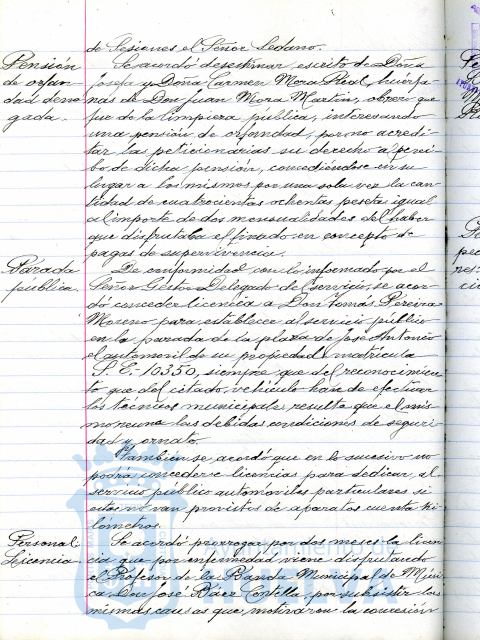 de Sesiones el Señor Ledano.
Pensión
de orfan-
dad dene-
gada.
Se acordó desestimar escrito de Doña
Josefa y Doña Carmen Mora Real, huérfa-
nas de Don Juan Mora Martín, obrero que
fué de la limpieza pública, interesando
una pensión de orfandad, por no acredi-
tar las peticionarias su derecho al perci-
bo de dicha pensión, concediéndose en su
lugar a los mismos por una sola vez la can-
tidad de cuatrocientas ochenta pesetas igual
al importe de dos mensualidades del haber
que disfrutaba el finado en concepto de
pagas de supervivencia.
Parada
pública.
De conformidad con lo informado por el
Señor Gestor Delegado del servicio, se acor-
dó conceder licencia a Don Tomás Pereira
Moreno para establecer al servicio público
en la parada de la plaza de José Antonio
el automóvil de su propiedad matrícula
S.E.-10350, siempre que del reconocimien-
to que del citado vehículo han de efectuar
los técnicos municipales resulte que el mis-
mo reune las debidas condiciones de seguri-
dad y ornato.
También se acordó que en lo sucesivo no
podrá concederse licencias para dedicar al
servicio público automóviles particulares si
estos no van provistos de aparatos cuenta ki-
lómetros.
Personal:
Licencia.
Se acordó prorrogar por dos meses la licen-
cia que por enfermedad viene disfrutando
el Profesor de la Banda Municipal de Músi-
ca, Don José Báez Costilla, por subsistir las
mismas causas que motivaron la concesión
Ayuntamiento de